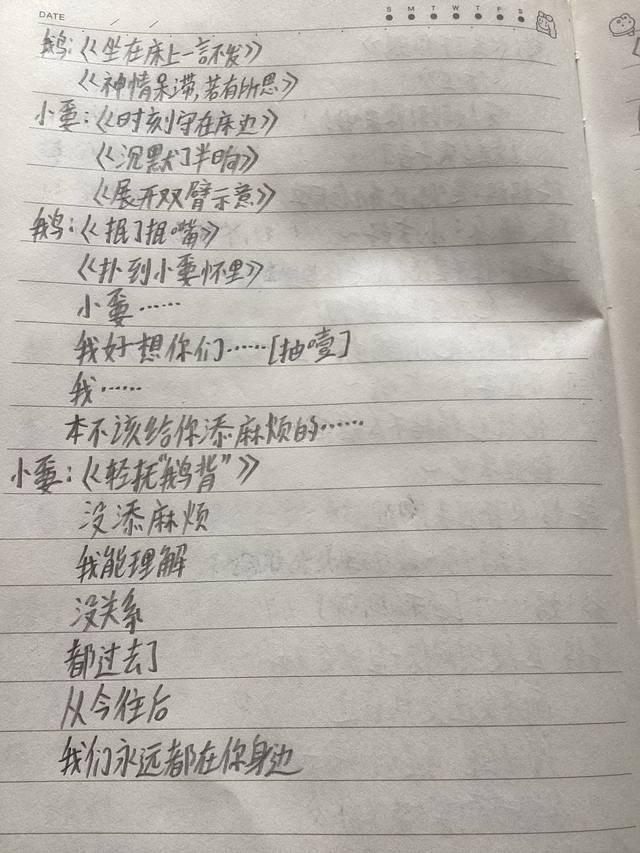 DATE / /
S M T W T F S
鹅:《坐在床上一言不发》
《神情呆滞,若有所思》
小耍:《时刻守在床边》
《沉默了半晌》
《展开双臂示意》
鹅:《抿了抿嘴》
《扑到小耍怀里》
小耍……
我好想你们……[抽噎]
我……
本不该给你添麻烦的……
小耍:《轻抚“鹅背”》
没添麻烦
我能理解
没关系
都过去了
从今往后
我们永远都在你身边